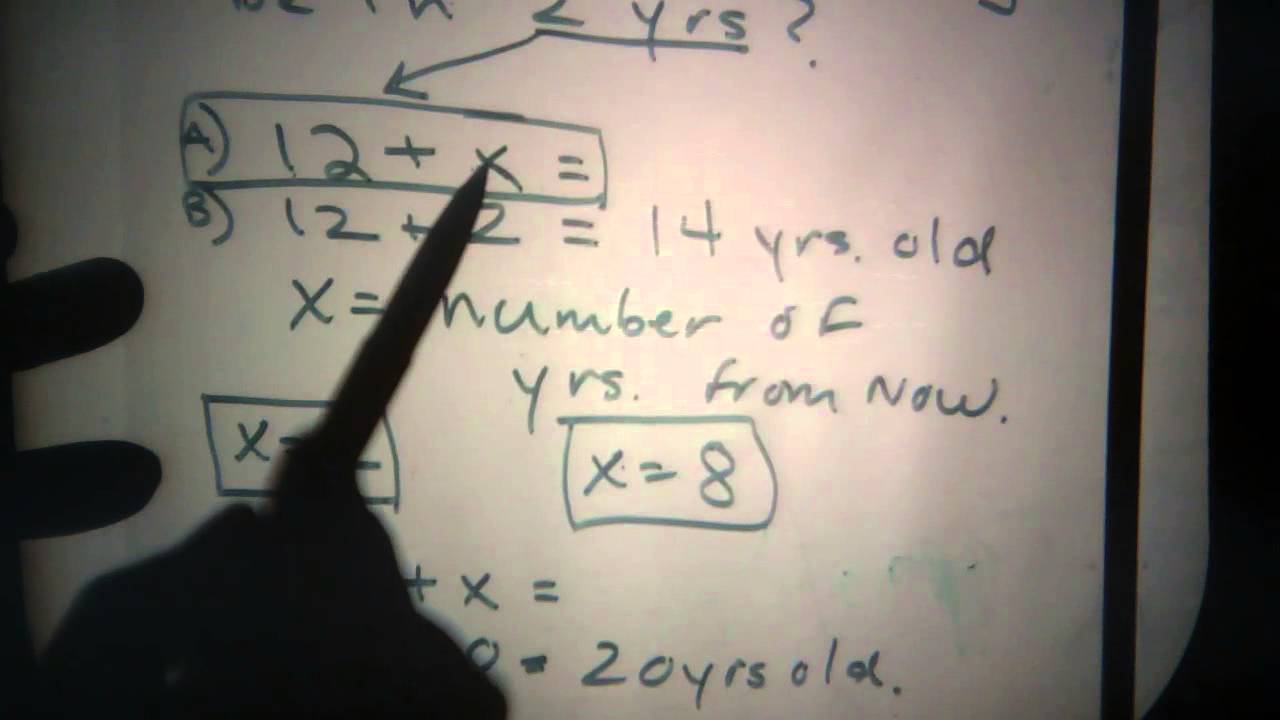 2 yrs?
A) 12 + x =
B) 12 + 2 = 14 yrs. old
X = number of
yrs. from Now.
x =
x = 8
+ x =
= 20 yrs old.